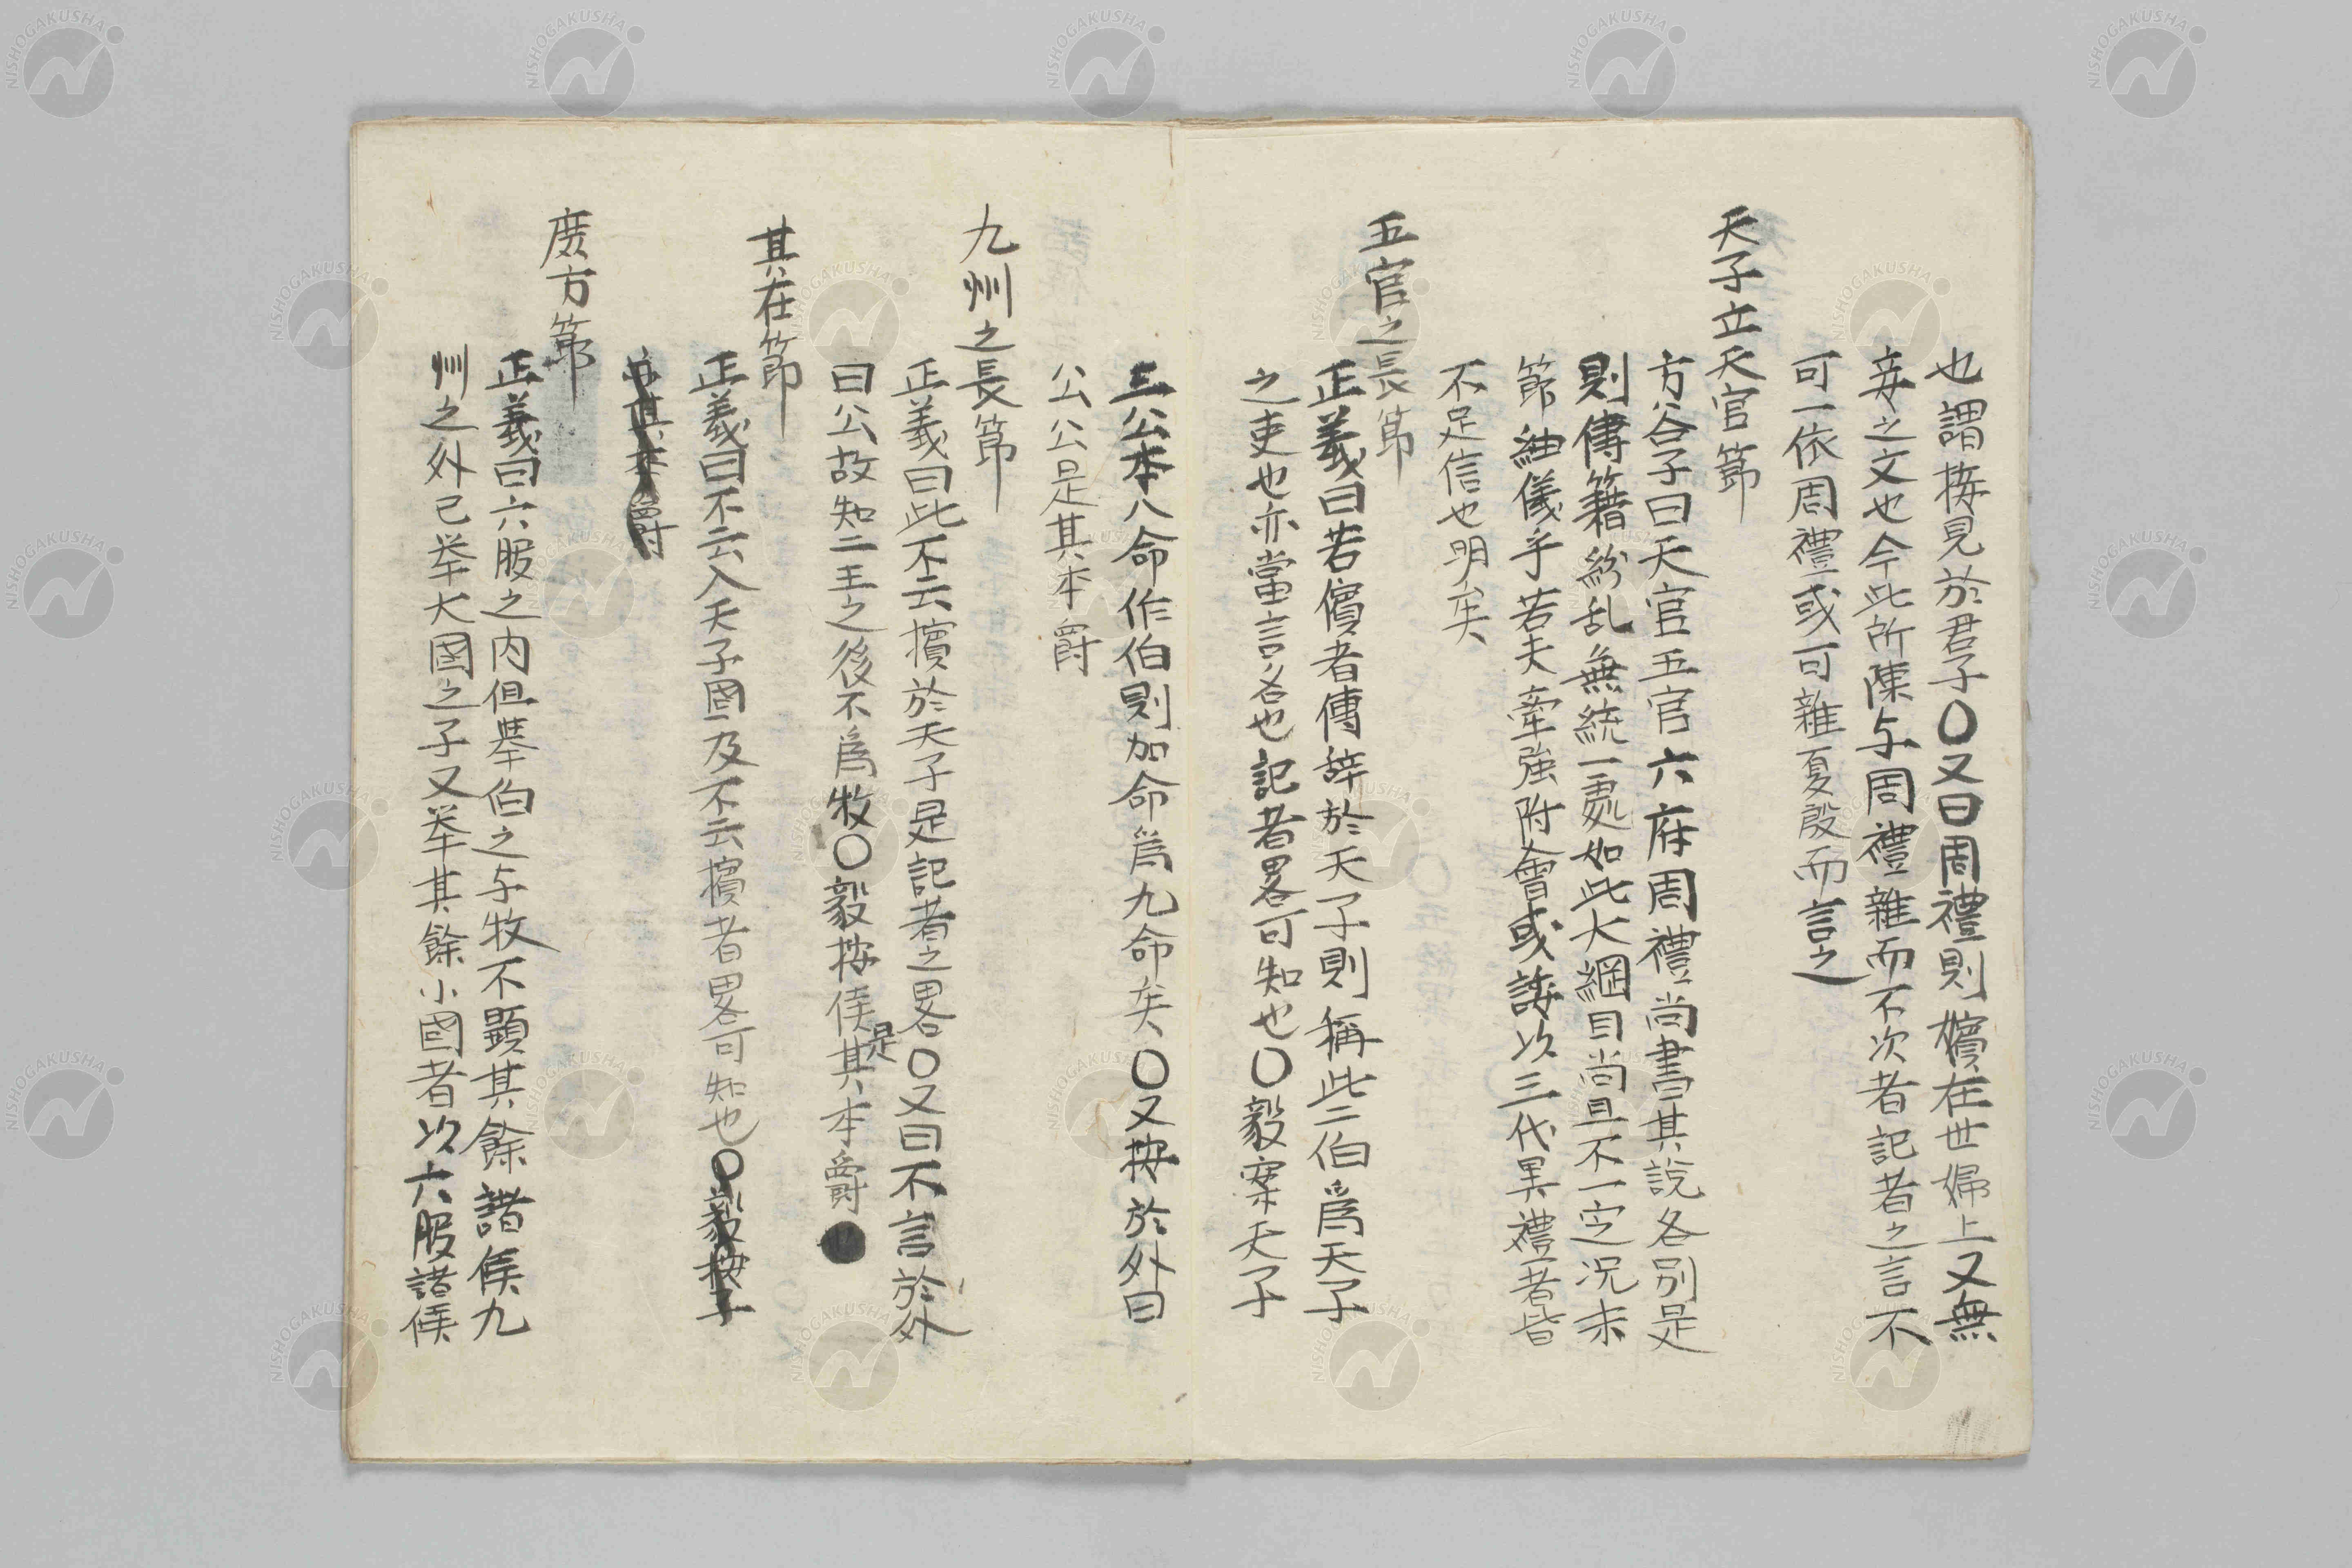 也謂接見於君子〇又曰周禮則嬪在世婦上又無
妾之文也今此所陳与周禮雜而不次者記者之言不
可一依周禮或可雜夏殷而言之
天子立天官節
方谷子曰天官五官六府周禮尚書其説各別是
則傳籍紛乱無統一處如此大綱目尚且不一定況末
節紬儀乎若夫牽強附會或誣以三代異禮者皆
不足信也明矣
五官之長節
正義曰若儐者傳辞於天子則稱此二伯為天子
之吏也亦當言名也記者畧可知也〇毅案天子
三公本八命作伯則加命爲九命矣〇又按於外曰
公公是其本爵
九州之長節
正義曰此不云擯於天子是記者之畧〇又曰不言於外
曰公故知二王之後不爲牧〇毅按侯是其本爵
其在節
正義曰不云入天子國及不云擯者畧可知也〇毅按子
爵
庶方節
正義曰六服之内但挙伯之与牧不顕其餘諸侯九
州之外已挙大國之子又挙其餘小國者以六服諸侯
NISHOGAKUSHA